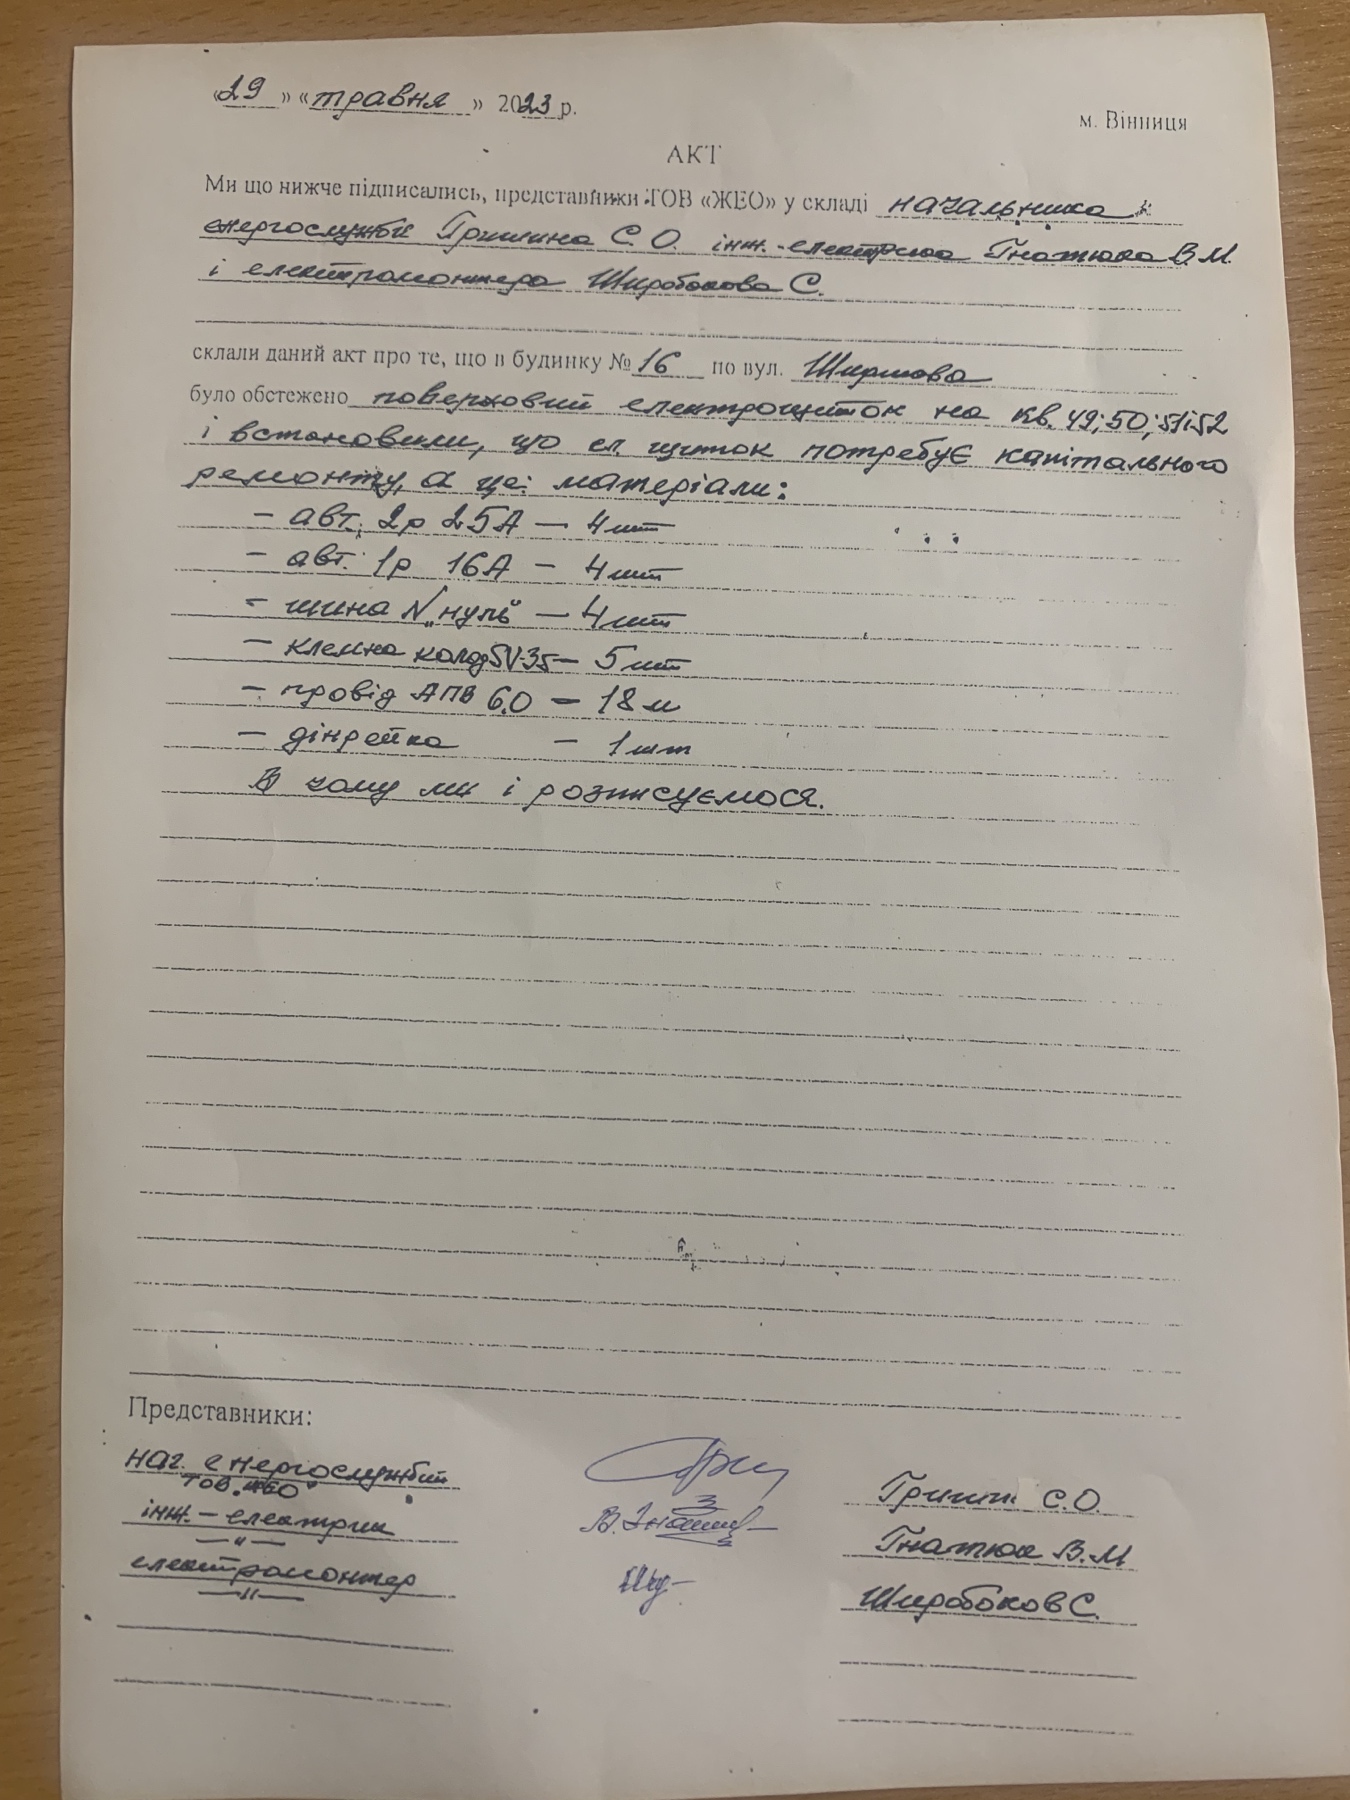 «29» «травня» 2023 р.
м. Вінниця
АКТ
Ми що нижче підписались, представники ТОВ «ЖЕО» у складі начальника
енергослужби Гришина С. О. інж.-електрика Гнатюка В.М.
і електромонтера Широбокова С.
склали даний акт про те, що в будинку № 16 по вул. Ширшова
було обстежено поверховий електрощиток на кв. 49; 50; 51 і 52
і встановили, що ел. щиток потребує капітального
ремонту, а це: матеріали:
- авт. 2р 25А - 4 шт
- авт. 1р 16А - 4 шт
- шина N „нуль" - 4 шт
- клемна колод SV-35 - 5 шт
- провід АПВ 6.0 - 18 м
- дінрейка - 1 шт
В чому ми і розписуємося.
Представники:
нач. енергослужби Гришин С.О.
ТОВ „ЖЕО"
інж.-електрик В. Гнатюк Гнатюк В.М
—"—
електромонтер Широбоков С.
—"—